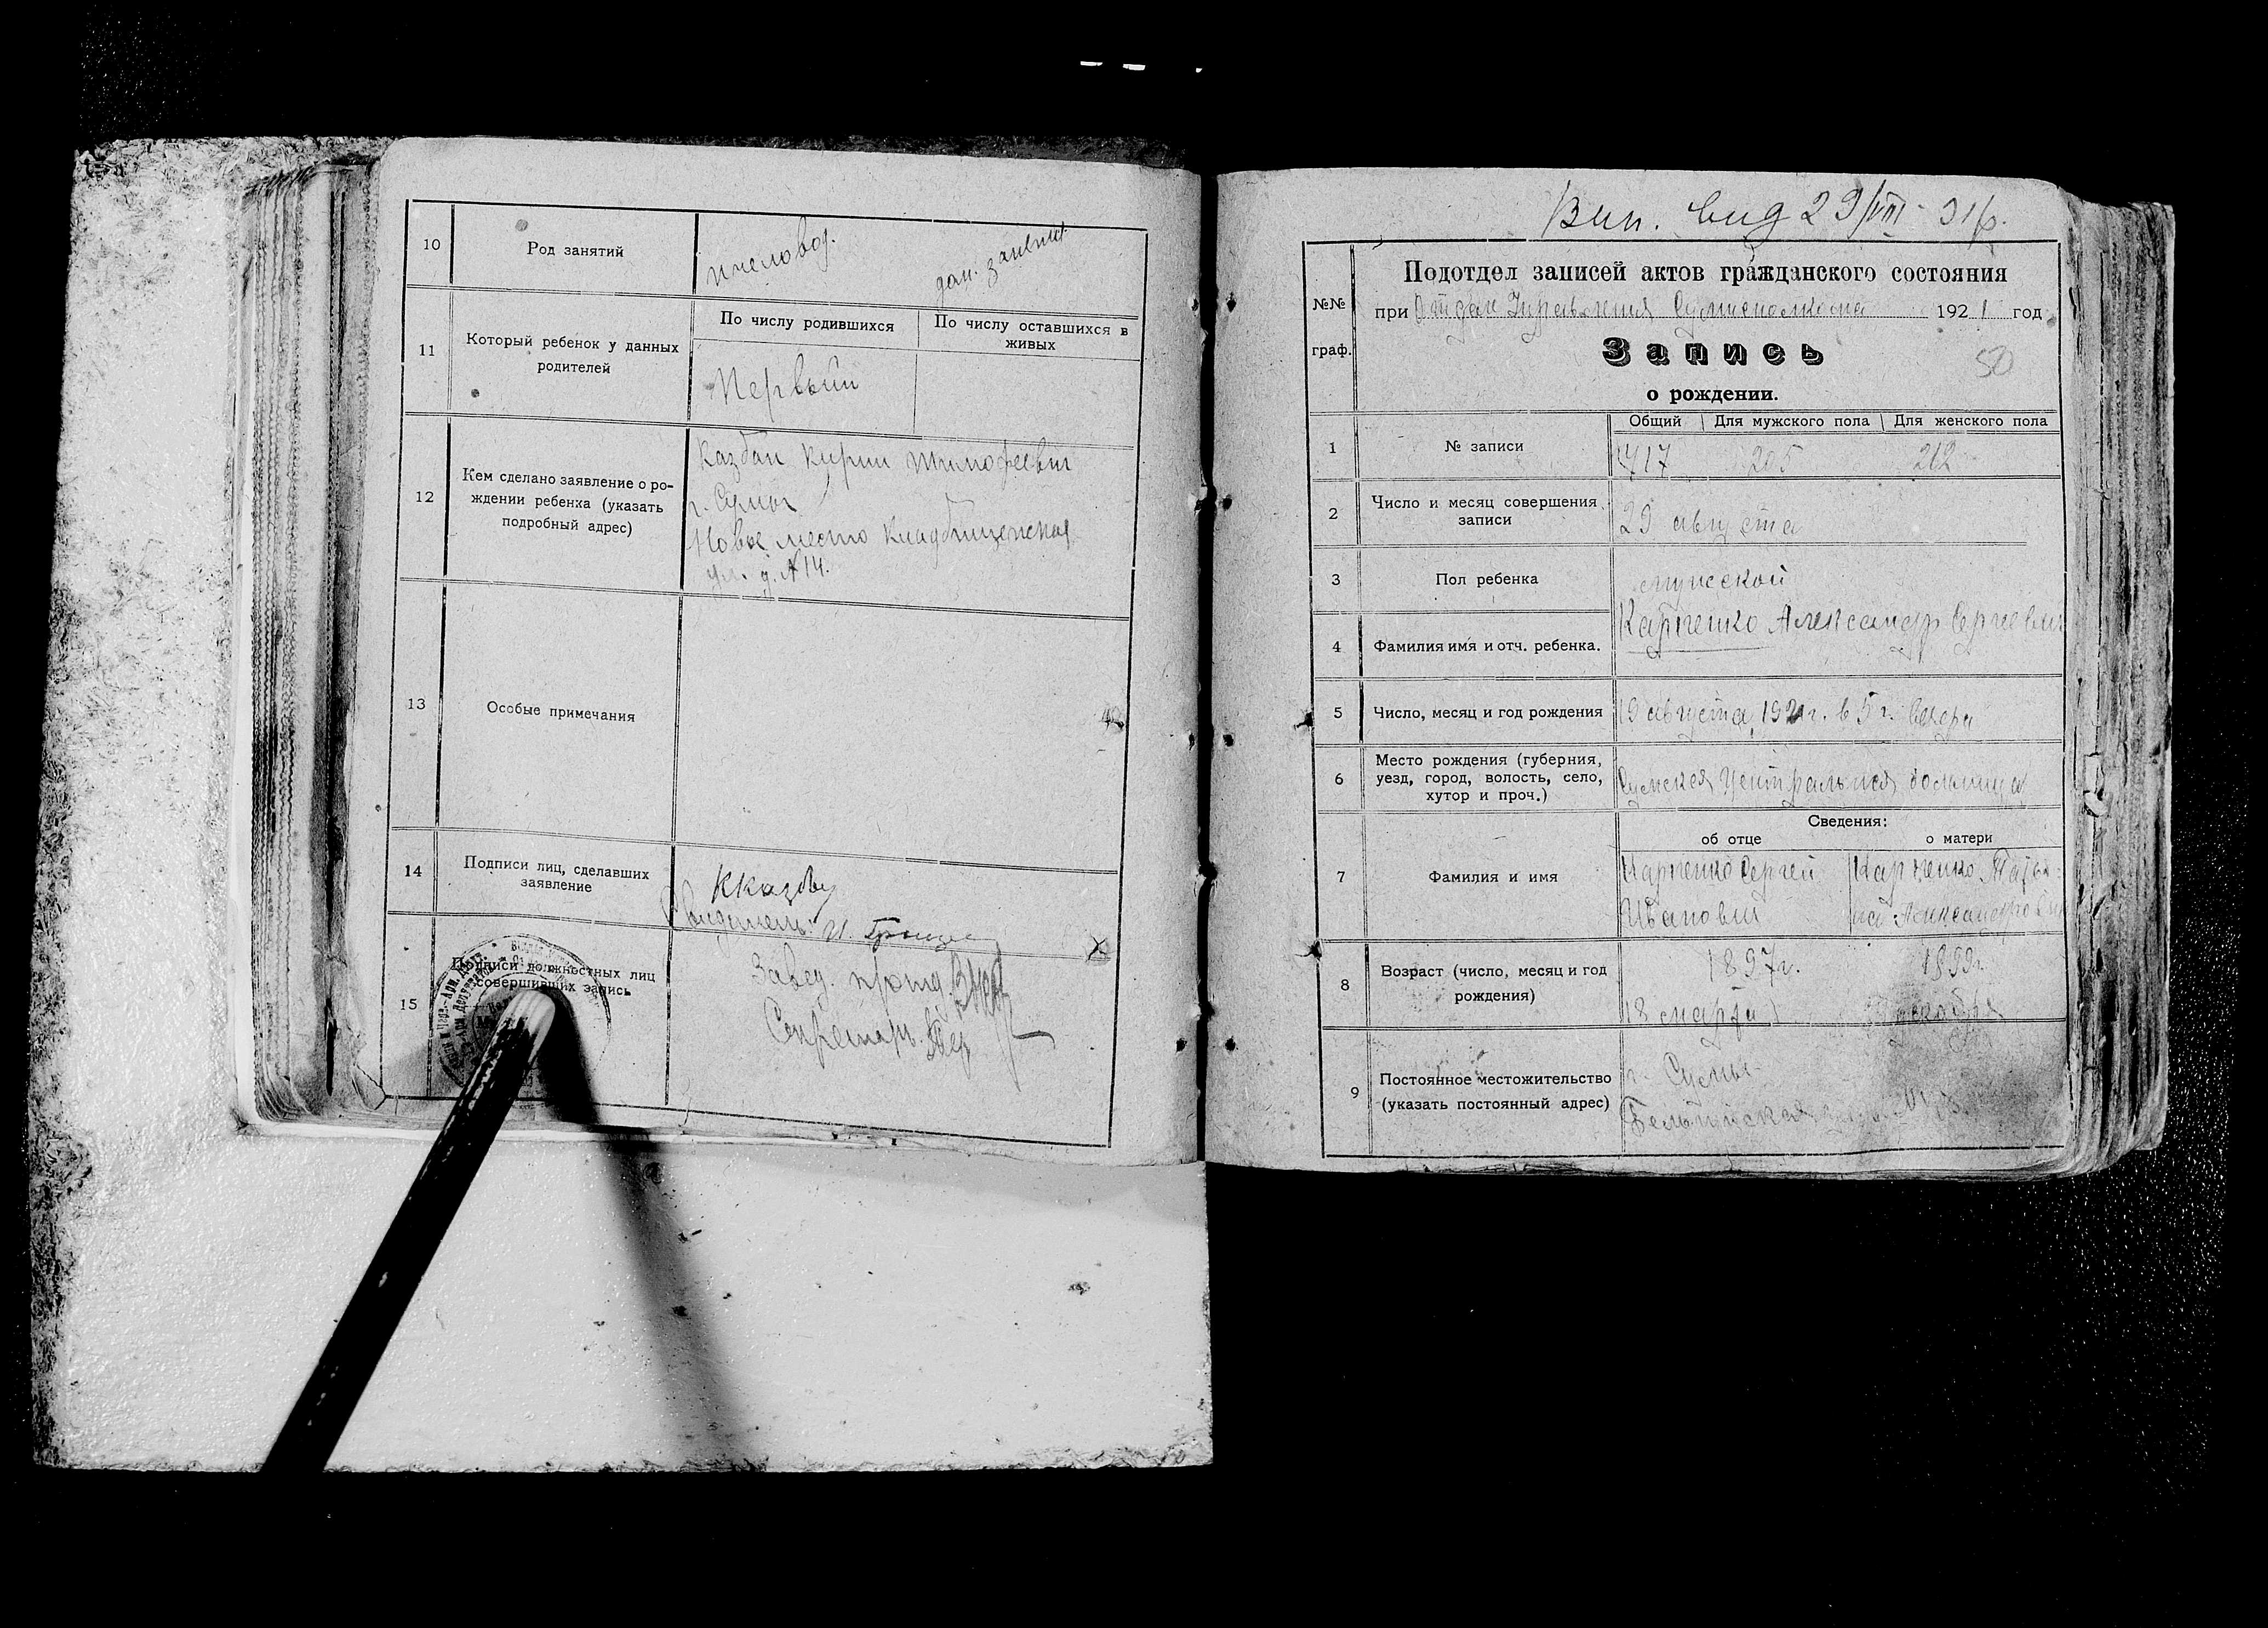 10 Род занятий пчеловод. дом. занятия
11 Который ребенок у данных родителей
По числу родившихся
По числу оставшихся в живых
Первый
12 Кем сделано заявление о ро-
ждении ребенка (указать
подробный адрес)
Казбан Кирил Тимофеевич
г. Сумы
Новое место Кладбищенская
ул. д. № 14.
13 Особые примечания
14 Подписи лиц, сделавших
заявление
Свидетель: И.
15 Подписи должностных лиц
совершивших запись
Завед.
Секретарь
Вип. вид 29/VIII 31 р.
№№
граф.
Подотдел записей актов гражданского состояния
при Отделе Управления 1921 год
50
Запись
о рождении.
Общий Для мужского пола Для женского пола
1 № записи 417 205 212
2 Число и месяц совершения
записи
29 августа
3 Пол ребенка мужской
4 Фамилия имя и отч. ребенка. Карпенко Александр Сергеевич
5 Число, месяц и год рождения 19 августа 1921 г. в 5 г. вечера
6 Место рождения (губерния,
уезд, город, волость, село,
хутор и проч.)
Сумская Центральная больница
Сведения:
об отце о матери
7 Фамилия и имя
Карпенко Сергей Карпенко Татья-
Иванович на Александровна
8 Возраст (число, месяц и год
рождения)
1897 г. 1899 г.
18 марта
9 Постоянное местожительство
(указать постоянный адрес)
г. Сумы
Бельгийская